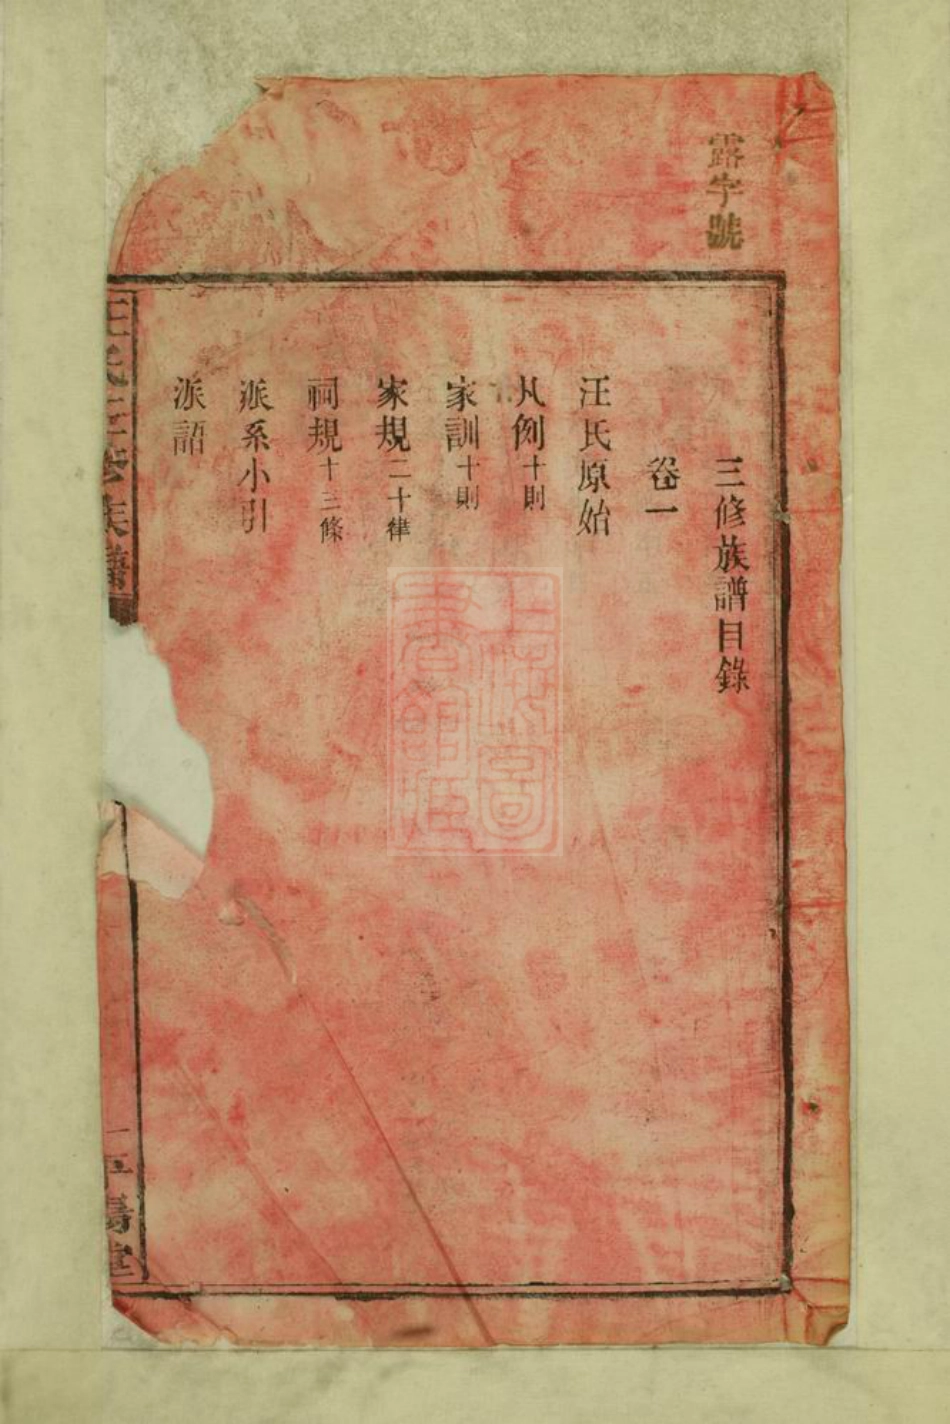 露字號
三修族譜目錄
卷一
汪氏原始
凡例十則
家訓十則
家規二十律
祠規十三條
派系小引
派語
汪氏三修族譜
一 平陽堂
上海圖書館藏